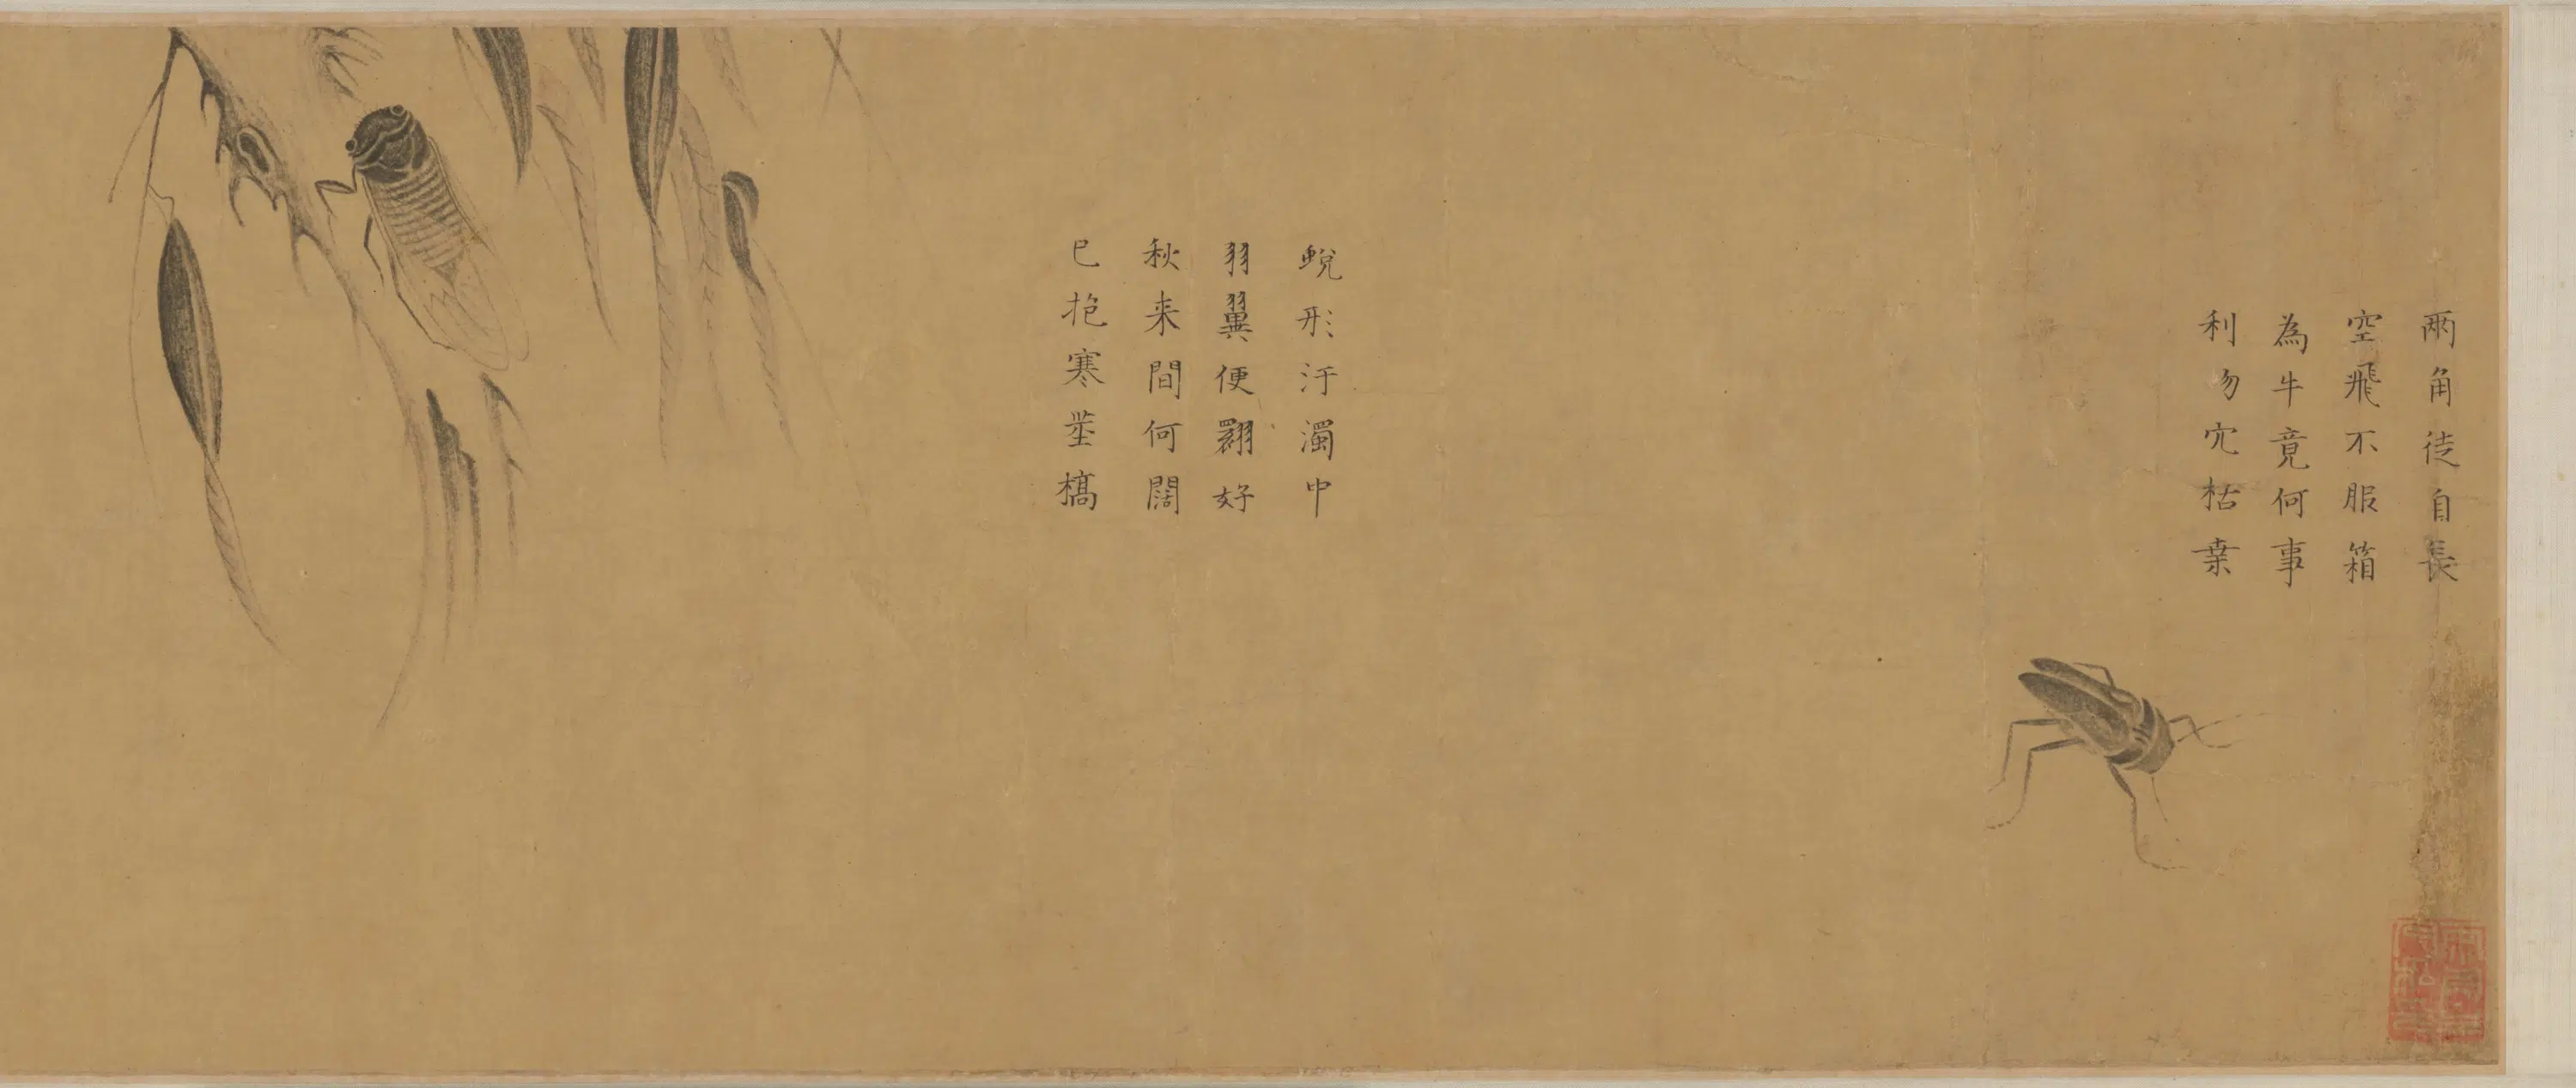 兩角徒自長
空飛不服箱
為牛竟何事
利吻穴枯桒
蛻形汙濁中
羽翼便翾好
秋来間何闊
已抱寒莖槁